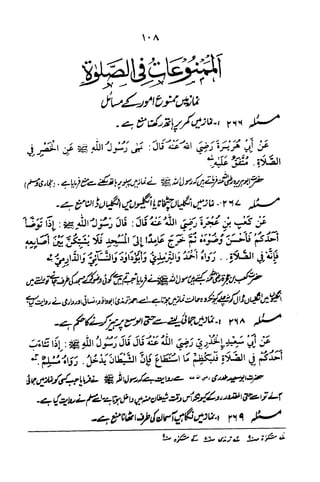 ۱۰۸
اَلْمَمْنُوْعَاتُ فِی الصَّلٰوۃِ
نماز میں ممنوع امور کے مسائل
مسئلہ ۲۶۶ :۔ نماز میں کمر پر ہاتھ رکھنا منع ہے ۔
عَنْ أَبِي هُرَيْرَةَ رَضِيَ اللهُ عَنْهُ قَالَ : نَهَى رَسُولُ اللهِ ﷺ عَنِ الْخَصْرِ فِي
الصَّلَاةِ . مُتَّفَقٌ عَلَيْهِ
حضرت ابوہریرہ رضی اللہ عنہ فرماتے ہیں کہ رسول اللہ ﷺ نے نماز میں پہلو پر ہاتھ رکھنے سے منع فرمایا ہے ۔ (بخاری و مسلم)
مسئلہ ۲۶۷ :۔ نماز میں انگلیاں چٹخانا یا انگلیوں میں انگلیاں ڈالنا منع ہے ۔
عَنْ كَعْبِ بْنِ عُجْرَةَ رَضِيَ اللهُ عَنْهُ قَالَ : قَالَ رَسُولُ اللهِ ﷺ : إِذَا تَوَضَّأَ
أَحَدُكُمْ فَأَحْسَنَ وُضُوءَهُ ثُمَّ خَرَجَ عَامِدًا إِلَى الْمَسْجِدِ فَلَا يُشَبِّكَنَّ بَيْنَ أَصَابِعِهِ
فَإِنَّهُ فِي الصَّلَاةِ . رَوَاهُ أَحْمَدُ وَالتِّرْمِذِيُّ وَأَبُودَاوُدَ وَالنَّسَائِيُّ وَالدَّارِمِيُّ
حضرت کعب بن عجرہ رضی اللہ عنہ کہتے ہیں رسول اللہ ﷺ نے فرمایا جب تم میں سے کوئی وضو کر کے مسجد کی طرف جائے تو راستے میں
انگلیوں میں انگلیاں ڈال کر نہ چلے کیونکہ وہ حالت نماز میں ہوتا ہے اسے احمد ترمذی ابوداود نسائی اور دارمی نے روایت کیا ہے
مسئلہ ۲۶۸ :۔ نماز میں جمائی لینے سے حتی الوسع پرہیز کرنے کا حکم ہے ۔
عَنْ أَبِي سَعِيدٍ الْخُدْرِيِّ رَضِيَ اللهُ عَنْهُ قَالَ قَالَ رَسُولُ اللهِ ﷺ : إِذَا تَثَاءَبَ
أَحَدُكُمْ فِي الصَّلَاةِ فَلْيَكْظِمْ مَا اسْتَطَاعَ فَإِنَّ الشَّيْطَانَ يَدْخُلُ . رَوَاهُ مُسْلِمٌ
حضرت ابوسعید خدری سے روایت ہے کہ رسول اللہ ﷺ نے فرمایا جب کسی کو نماز میں جمائی
آئے تو اسے حتی المقدور روکے کیونکہ اس وقت شیطان منہ میں داخل ہوتا ہے اسے مسلم نے روایت کیا ہے ۔
مسئلہ ۲۶۹ :۔ نماز میں نگاہیں آسمان کی طرف اٹھانا منع ہے ۔